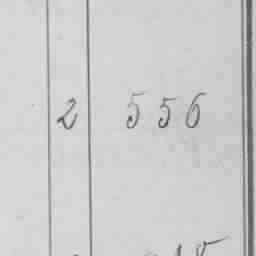 2 556